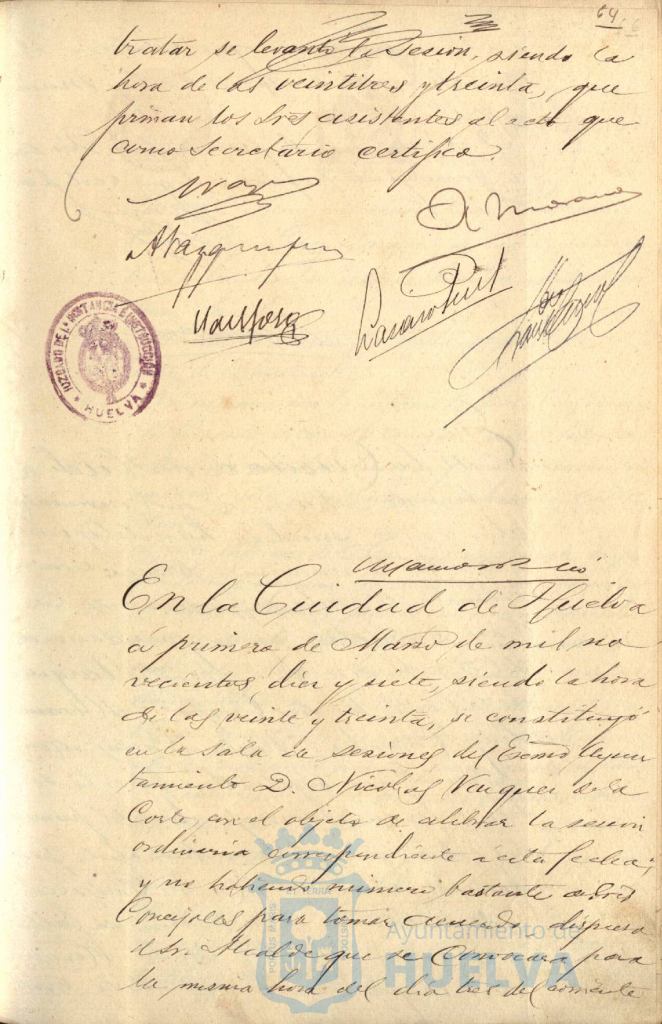 64
tratar se levantó la Sesion, siendo la
hora de las veintitres y treinta, que
firman los Sres asistentes al acto que
como Secretario certifico.
A. Moreno
JUZGADO DE 1ª INSTANCIA E INSTRUCCION
* HUELVA *
En la Ciudad de Huelva
á primero de Marzo de mil no
vecientos diez y siete, siendo la hora
de las veinte y treinta, se constituyó
en la Sala de sesiones del Excmo Ayun
tamiento D. Nicolas Vazquez de la
Corte, con el objeto de celebrar la sesion
ordinaria correspondiente á esta fecha;
y no habiendo número bastante de Sres
Concejales para tomar acuerdo, dispuso
el Sr. Alcalde que se convocara para
la misma hora del dia tres del corriente
Ayuntamiento de
HUELVA